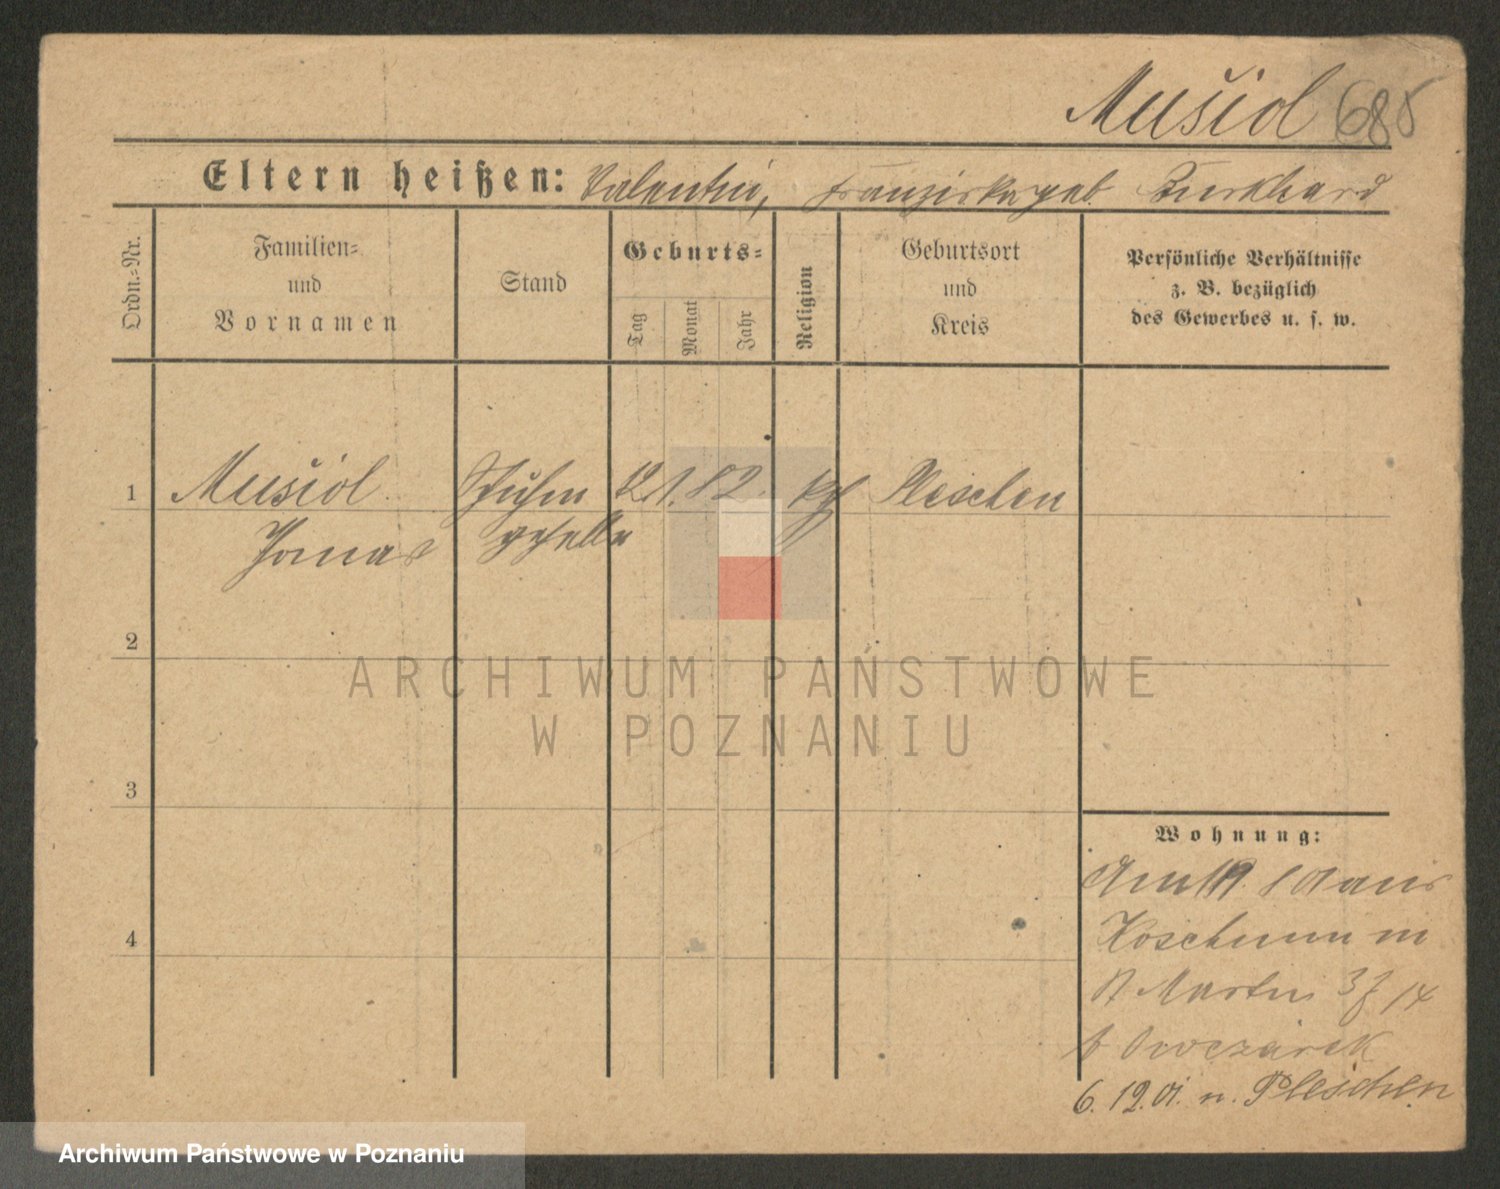 Musiol 685
Eltern heißen: Valentin, Franziska geb. Burkhard
Ordn.-Nr.
Familien-
und
Vornamen
Stand
Geburts-
Tag
Monat
Jahr
Religion
Geburtsort
und
Kreis
Persönliche Verhältnisse
z. B. bezüglich
des Gewerbes u. s. w.
1 Musiol 12. 1. 82. kth Pleschen
geselle
2
3
4
Wohnung:
aus
Koschmin in
St Martin 37 /14
b Owczarek
6. 12. 01. n. Pleschen
ARCHIWUM PAŃSTWOWE
W POZNANIU
Archiwum Państwowe w Poznaniu